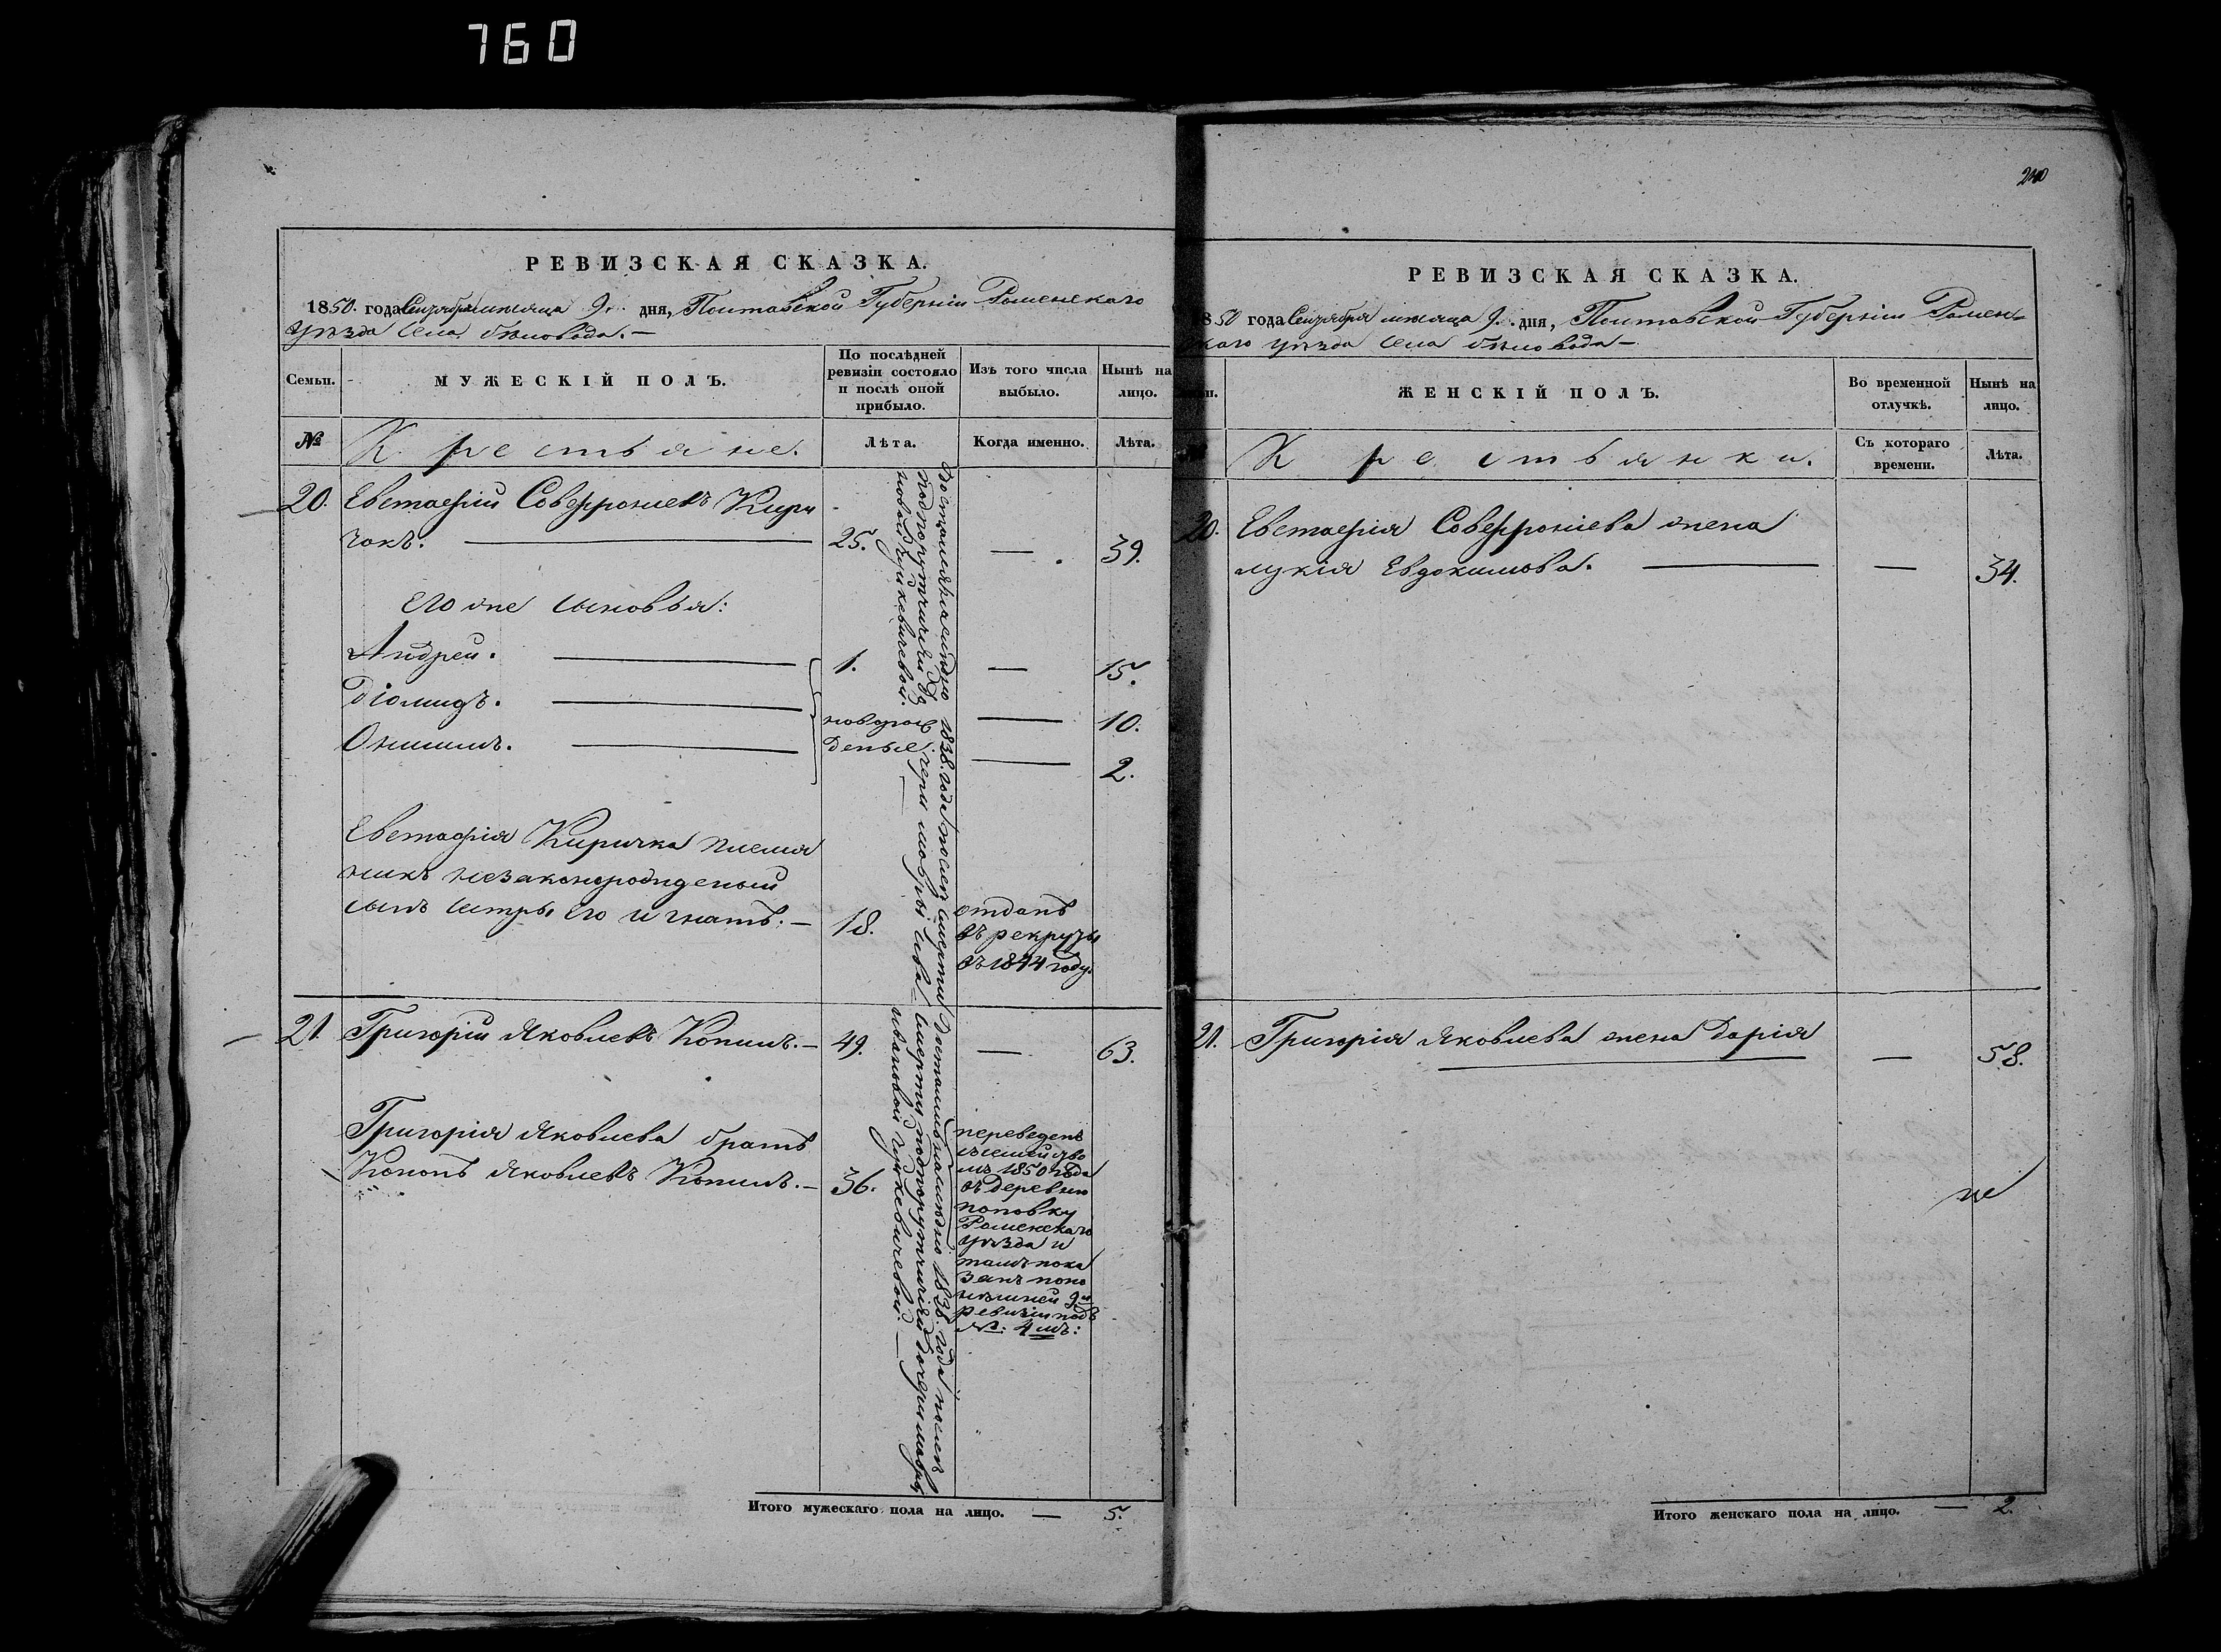 760
РЕВИЗСКАЯ СКАЗКА.
1850. года Сентября месяца 9. дня, Полтавской Губерніи Роменскаго
уѣзда села бѣловода.—
Семьи.
МУЖЕСКІЙ ПОЛЪ.
По послѣдней
ревизіи состояло
и послѣ оной
прибыло.
Изъ того числа
выбыло.
Нынѣ на
лицо.
№
Крестьяне.
Лѣта.
Когда именно.
Лѣта.
20. Евстафій Софроніевъ Кири
чокъ. — 25. — 39.
Его же сыновья:
Андрей. — 1. — 15.
Діомидъ. — новорож — 10.
Онисимъ. — деные. — 2.
Евстафія Киричка племя
никъ незаконорожденый
сынъ сестры его Игнатъ. — 18.
отданъ
въ рекруты
въ 1844 году.
достался по наслѣдию 1838. года после смерти
подпоручичѣи
новой Гуцкевичевой.
21. Григорій Яковлевъ Копилъ. — 49. — 63.
Григорія Яковлева братъ
Кононъ Яковлевъ Копилъ. — 36.
переведенъ
съ семейство
мъ 1850 года
въ деревню
поповку
Роменскаго
уѣзда и
тамъ пока
занъ по
нѣшней 9й
ревизіи подъ
№: 4мъ:
1838. года после
смерти подпоручичѣи
ивановой Гуцкевичевой. —
Итого мужескаго пола на лицо. — 5.
200
РЕВИЗСКАЯ СКАЗКА.
850 года Сентября месяца 9. дня, Полтавской Губерніи Ромен-
скаго уѣзда села бѣловода —
ЖЕНСКІЙ ПОЛЪ.
Во временной
отлучкѣ.
Нынѣ на
лицо.
Крестьянки.
Съ котораго
времени.
Лѣта.
20. Евстафія Софроніева жена
лукія Евдокимова. — — 34.
21. Григорія Яковлева жена Дарія
— 58.
Итого женскаго пола на лицо. — 2.